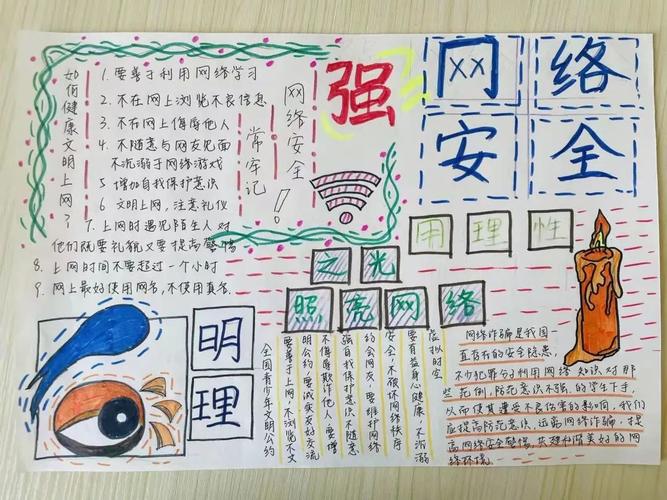 如何健康文明上网？
1. 要善于利用网络学习
2. 不在网上浏览不良信息
3. 不在网上侮辱他人
4. 不随意与网友见面
不沉溺于网络游戏
5 增加自我保护意识
6 文明上网，注意礼仪
7. 上网时遇见陌生人对
他们既要礼貌又要提高警惕
8. 上网时间不要超过一个小时
9. 网上最好使用网名，不使用真名.
网络安全
常牢记!
强
网络
安全
用理性
之光
照亮网络
明
理
全国青少年文明公约
要善于上网,不浏览不文
明公约,要诚实友好交流
不侮辱欺诈他人,要增
强自我保护意识不随意
约会网友,要维护网络
安全,不破坏网络秩序
要有益身心健康,不沉溺
虚拟时空
网络诈骗是我国一
直存在的安全隐患,
不少犯罪分子利用网络知识对那
些 防范意识不强的学生下手,
从而使其遭受不良伤害的影响,我们
应提高防范意识,远离网络诈骗,提
高网络安全警惕,共建和谐美好的网
络环境.